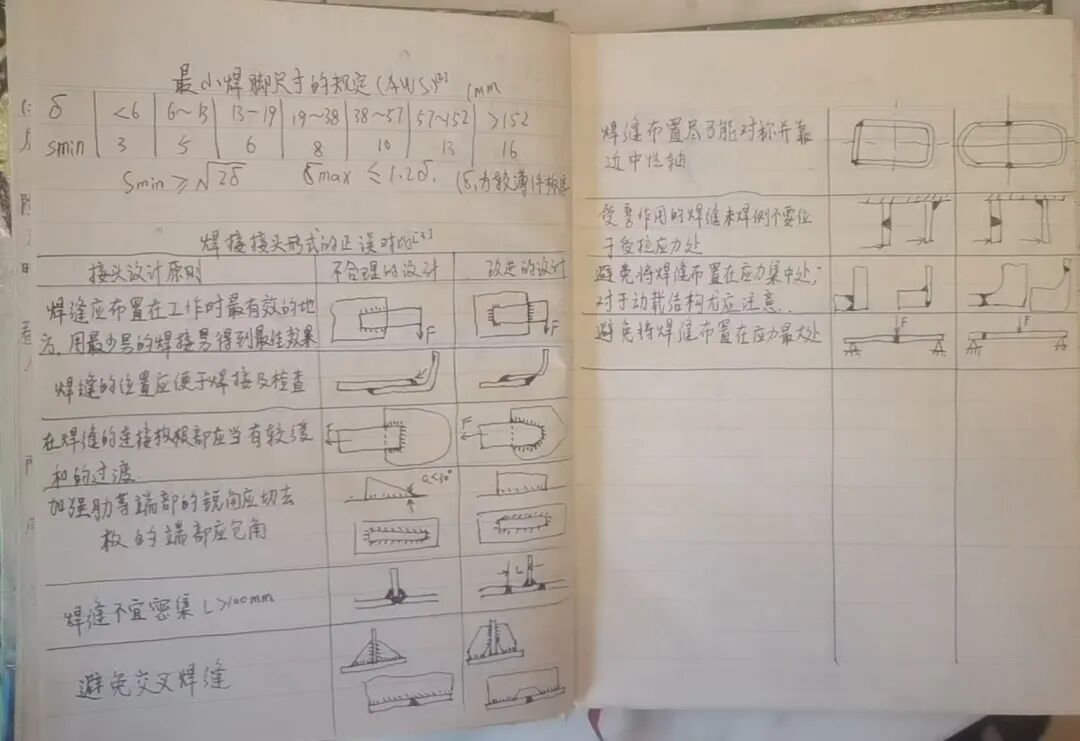 最小焊脚尺寸的规定(AWS)[2] (mm
δ <6 6~13 13-19 19~38 38~57 57~152 >152
Smin 3 5 6 8 10 13 16
Smin ≥ √2δ δmax ≤ 1.2δ, (δ,为较薄件板厚
焊接接头形式的正误对比[2]
接头设计原则 不合理的设计 改进的设计
焊缝应布置在工作时最有效的地
方,用最少量的焊接量得到最佳效果
F F
焊缝的位置应便于焊接及检查
在焊缝的连接板根部应当有较缓
和的过渡.
F F
加强肋等端部的锐角应切去
板的端部应包角
α<30°
焊缝不宜密集 L>100mm
L
避免交叉焊缝
焊缝布置尽可能对称并靠
近中性轴
受弯作用的焊缝未焊侧不要位
于受拉应力处
避免将焊缝布置在应力集中处;
对于动载结构尤应注意..
避免将焊缝布置在应力最大处
F F